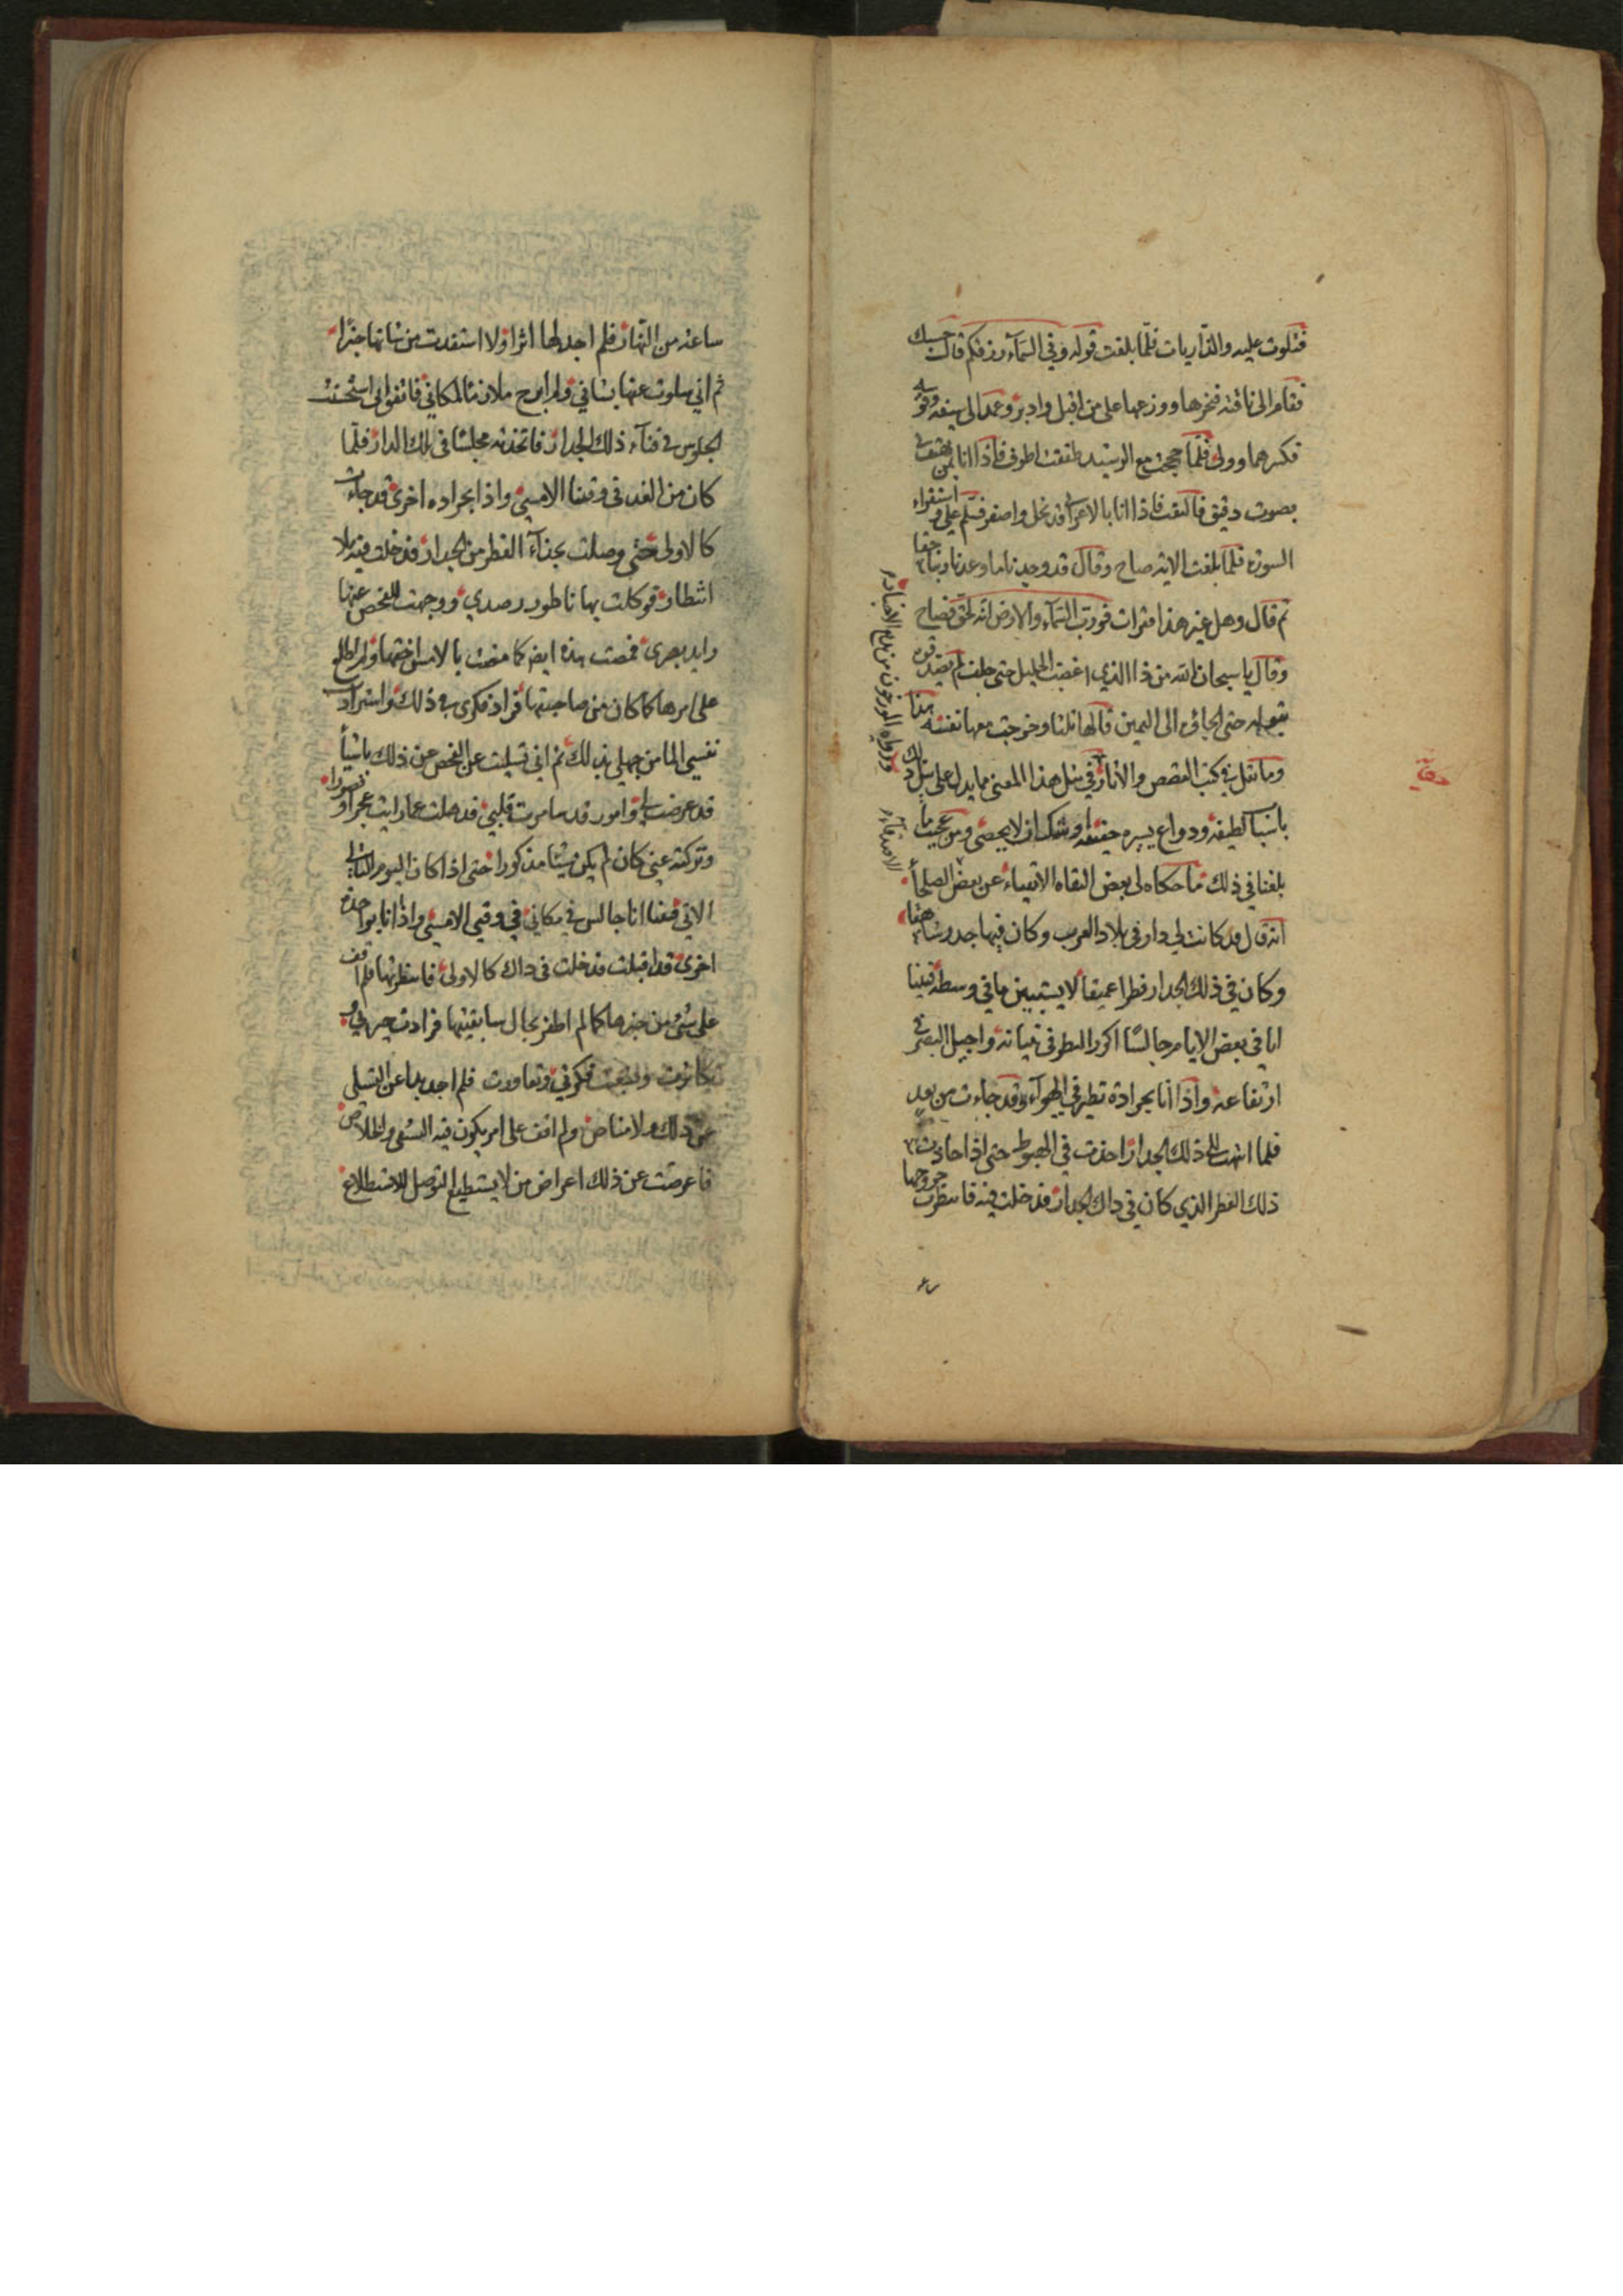 فتلوت عليه والذاريات فلما بلغت قوله وفي السماء رزقكم قال حسبك
فقام الى ناقته فنحرها ووزعها على من اقبل وادبر وعمد الى سيفه وقوسه
فكسرهما وولى فلما حججت مع الرشيد طفقت اطوف فاذا انا بمن يهتف بي
بصوت دقيق فالتفت فاذا انا بالاعرابي قد نحل واصفر فسلم علي واستقراء
السورة فلما بلغت الاية صاح وقال قد وجدنا ما وعدنا ربنا حقا
ثم قال وهل غير هذا فقرات فورب السماء والارض انه لحق فصاح
وقال يا سبحان الله من ذا الذي اغضب الجليل حتى حلف لم يصدقوه
بقوله حتى الجاؤه الى اليمين قالها ثلثا وخرجت معها نفسه هذا
وما نقل في كتب القصص والاثار في مثل هذا المعنى مما يدل على مثل ذلك
باسباب لطيفة ودواع يسيره حقيقة وشكران لا يحصى ومن عجيب ما
بلغنا في ذلك ما حكاه لي بعض الثقاه الاتقياء عن بعض الصلحاء
انه قال قد كانت لي دار في بلاد العرب وكان فيها جدر وشاهقا
وكان في ذلك الجدار فطرا عميقا لا يستبين ما في وسطه فبينا
انا في بعض الايام جالسا اكرر النظر في بنيانه واجيل البصر في
ارتفاعه واذا انا بجرادة تطير في الهواء وقد جاءت من بعد
فلما انتهت الى ذلك الجدار اخذت في الهبوط حتى اذا حاذت
ذلك الفطر الذي كان في ذاك الجدار فدخلت فيه فانتظرت خروجها
ورواه المورخون من نوع الاخبار
ساعة من النهار فلم اجد لها اثرا ولا استفدت من شانها خبرا
ثم اني سلوت عنها بشاني ولم ابرح ملازما لمكاني فاتفق اني استحسنت
الجلوس في فناء ذلك الجدار فاتخذته مجلسا في تلك الدار فلما
كان من الغد في وقتنا الامسي واذا بجراده اخرى قد جاءت
كالاولى حتى وصلت بحذاء الفطر من الجدار فدخلت فيه بلا
انتظار فوكلت بها ناطور رصدي ووجهت للفحص عنها
رايد بصري فمحصت هذه ايضا كما محصت بالامس اختها ولم اطلع
على امرها كما كان من صاحبتها فزاد فكري في ذلك واستزادت
نفسي الما من جهلي بذلك ثم اني تسليت عن الفحص عن ذلك باشياء
قد عرضت لي وامور قد سامرت قلبي فذهلت عما رايت عجزا وقصورا
وتركته عني كان لم يكن شيئا مذكورا حتى اذا كان اليوم الثالث
الاتي فبينا انا جالس في مكاني في وقتي الامسي واذا انا بواحدة
اخرى قد اقبلت فدخلت في ذاك كالاولى فانتظرتها فلم اقف
على شيء من خبرها كما لم اظفر بحال سابقيتها فزادت حيرتي و
تكاثرت فكرتي وتعاودت فلم اجد بدا عن التسلي
عن ذلك ولا مناص ولم اقف على امر يكون فيه الشفى والخلاص
فاعرضت عن ذلك اعراض من لا يستطيع التوصل للاستطلاع